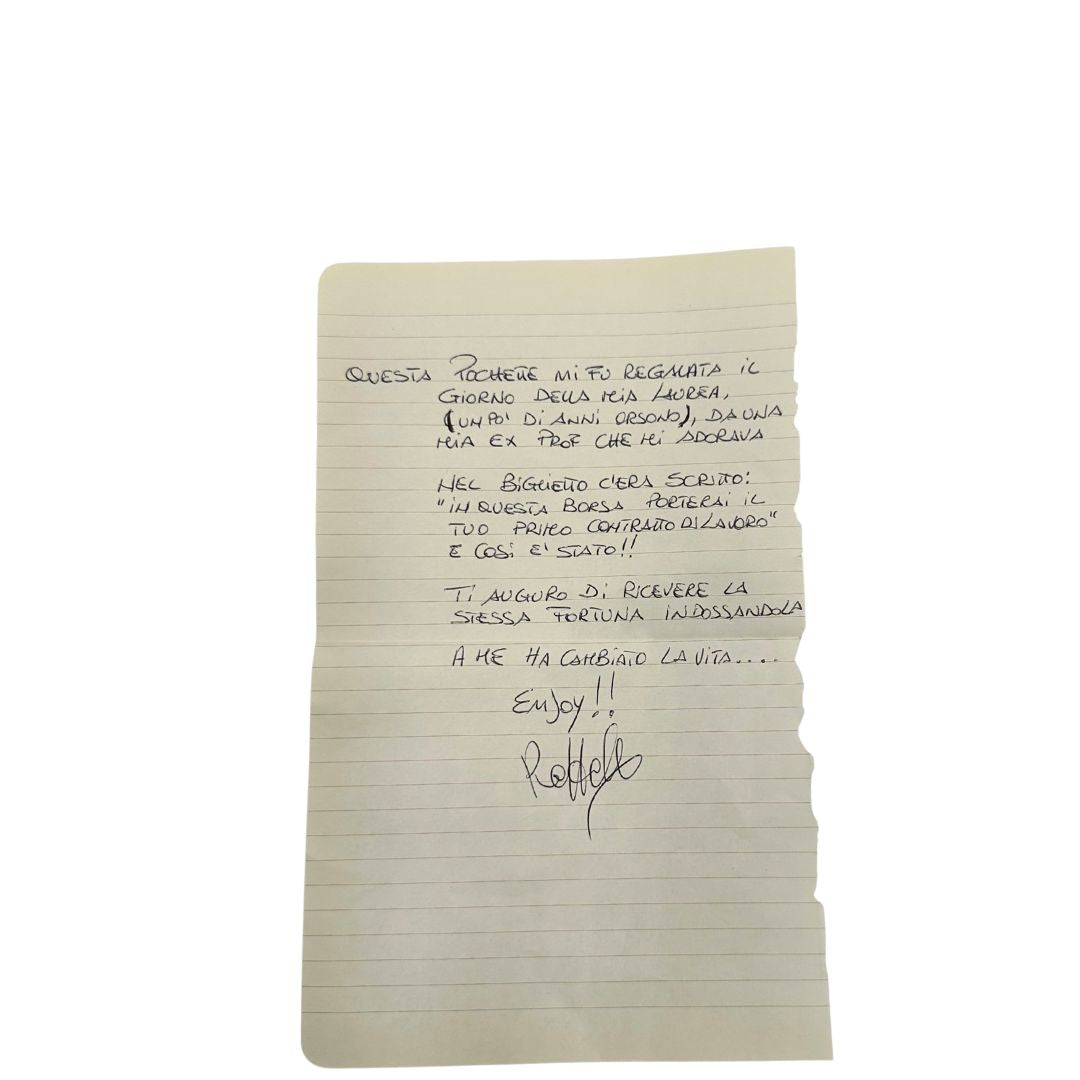 QUESTA POCHETTE MI FU REGALATA IL
GIORNO DELLA MIA LAUREA,
(UN PO' DI ANNI ORSONO), DA UNA
MIA EX PROF CHE MI ADORAVA
NEL BIGLIETTO C'ERA SCRITTO:
"IN QUESTA BORSA PORTERAI IL
TUO PRIMO CONTRATTO DI LAVORO"
E COSI E' STATO!!
TI AUGURO DI RICEVERE LA
STESSA FORTUNA INDOSSANDOLA
A ME HA CAMBIATO LA VITA....
ENJOY!!